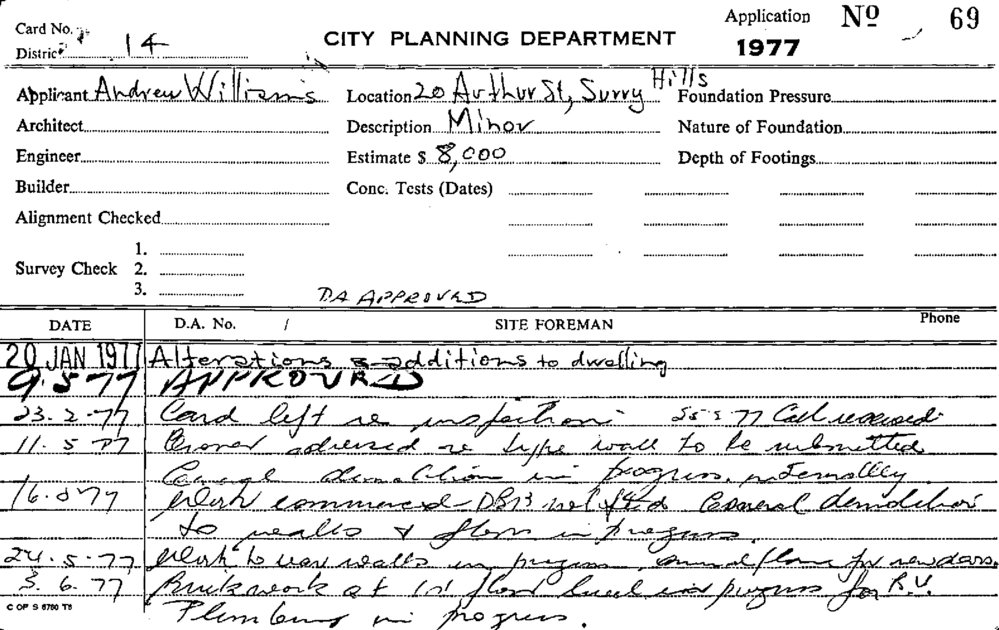 Card No.
District 14
CITY PLANNING DEPARTMENT
Application Nº 69
1977
Applicant Andrew Williams
Location 20 Arthur St, Surry Hills
Foundation Pressure
Architect
Description Minor
Nature of Foundation
Engineer
Estimate $ 8,000
Depth of Footings
Builder
Conc. Tests (Dates)
Alignment Checked
Survey Check 1.
2.
3.
DA APPROVED
DATE D.A. No. / SITE FOREMAN Phone
20 JAN 1977 Alterations & additions to dwelling
9.5.77 APPROVED
23.2.77 Card left re inspection Call received
11.5.77 Owner advised re type wall to be submitted
demolition in progress internally
16.5.77 Work commenced General demolition
to walls & floors in progress
24.5.77 Work to rear walls in progress for new doors.
3.6.77 Brickwork at 1st floor level in progress for B.V.
C OF S 6780 T8
Plumbing in progress.